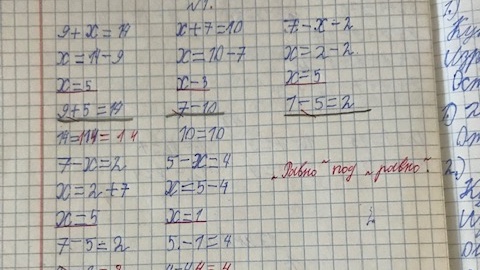 9+x=14
x=14-9
x=5
9+5=14
14=14=14
7-x=2
x=2+7
x=5
7-5=2
x+7=10
x=10-7
x-3
7-10
10=10
5-x=4
x=5-4
x=1
5.-1=4
7-x-2
x=2-2
x=5
7-5=2
„Равно" под „равно".